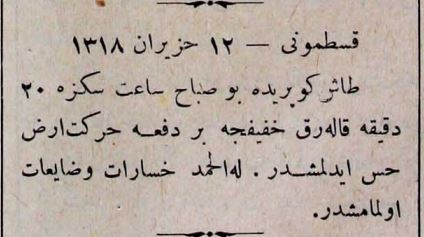 قسطمونی — ١٢ حزیران ١٣١٨
طاش كوپریده بو صباح ساعت سكزه ٢٠
دقیقه قاله‌رق خفیفجه بر دفعه حركت‌ارض
حس ایدلمشدر . له‌الحمد خسارات وضایعات
اولمامشدر.